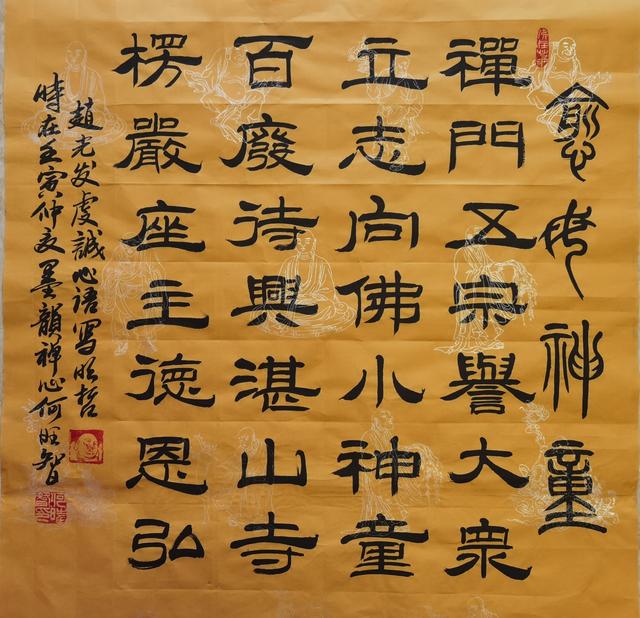 神童
禪門五宗譽大衆
立志向佛小神童
百廢待興湛山寺
楞嚴座主德恩弘
趙老发虔誠心語寫哲
時在壬寅仲夏墨韻禪心何旺智